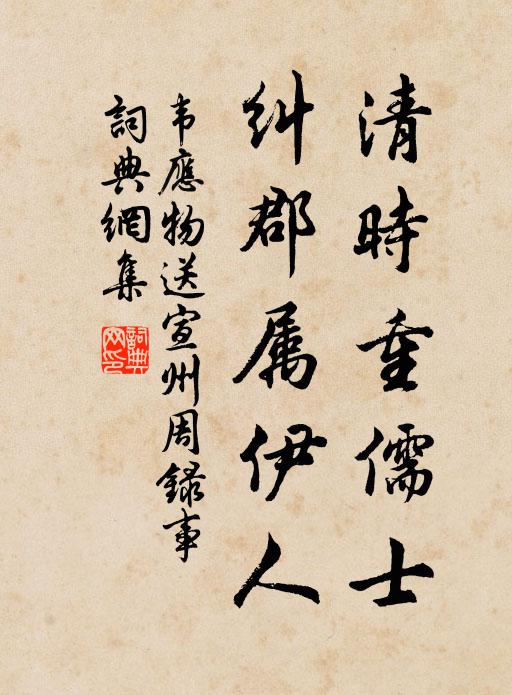 清時重儒士
糾郡属伊人
韦應物送宣州周録事
詞典網集
詞典網印